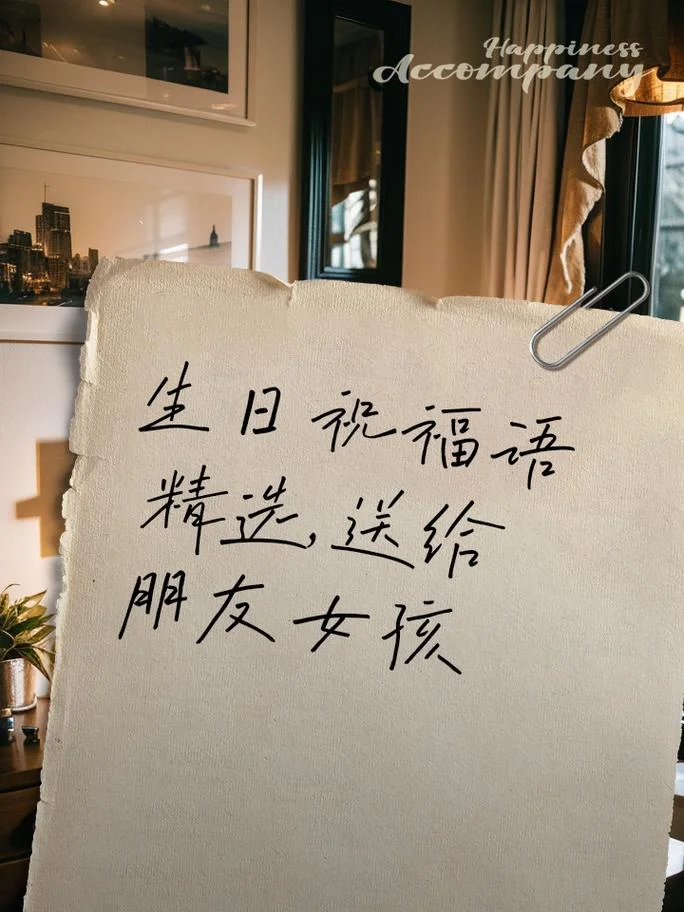 Happiness
Accompany
生日祝福语
精选,送给
朋友女孩